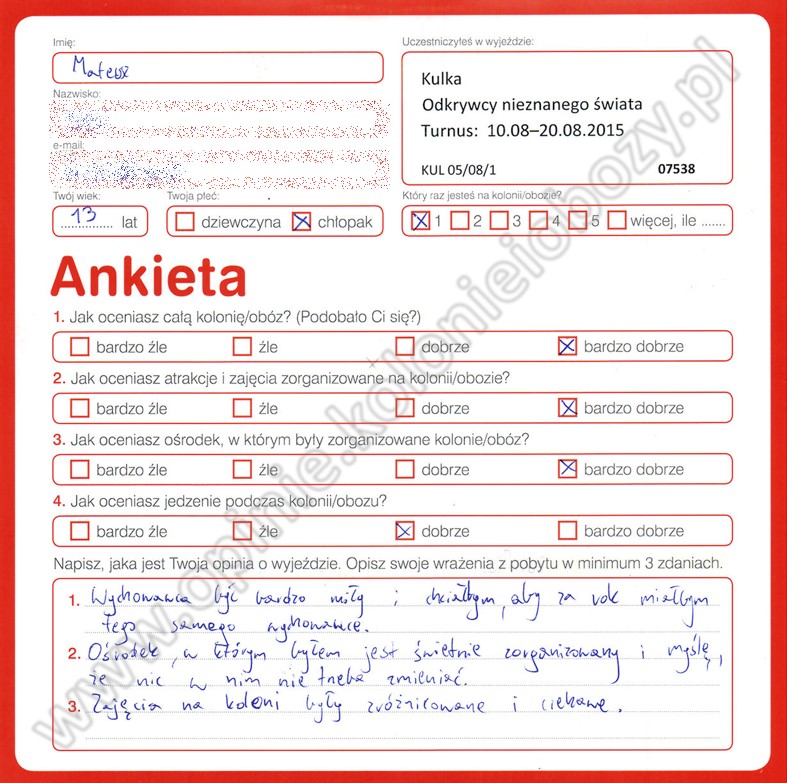 Imię:
Mateusz
Uczestniczyłeś w wyjeździe:
Kulka
Odkrywcy nieznanego świata
Turnus: 10.08–20.08.2015
KUL 05/08/1 07538
Nazwisko:
e-mail:
Twój wiek:
13 lat
Twoja płeć:
dziewczyna chłopak
Który raz jesteś na kolonii/obozie?
1 2 3 4 5 więcej, ile .......
Ankieta
1. Jak oceniasz całą kolonię/obóz? (Podobało Ci się?)
bardzo źle źle dobrze bardzo dobrze
2. Jak oceniasz atrakcje i zajęcia zorganizowane na kolonii/obozie?
bardzo źle źle dobrze bardzo dobrze
3. Jak oceniasz ośrodek, w którym były zorganizowane kolonie/obóz?
bardzo źle źle dobrze bardzo dobrze
4. Jak oceniasz jedzenie podczas kolonii/obozu?
bardzo źle źle dobrze bardzo dobrze
Napisz, jaka jest Twoja opinia o wyjeździe. Opisz swoje wrażenia z pobytu w minimum 3 zdaniach.
1. Wychowawca być bardzo miły i chciałbym, aby za rok miałbym
tego samego wychowawcę.
2. Ośrodek, w którym byłem jest świetnie zorganizowany i myślę,
że nic w nim nie trzeba zmieniać.
3. Zajęcia na koloni były zróżnicowane i ciekawe.
www.opinie.kolonieiobozy.pl